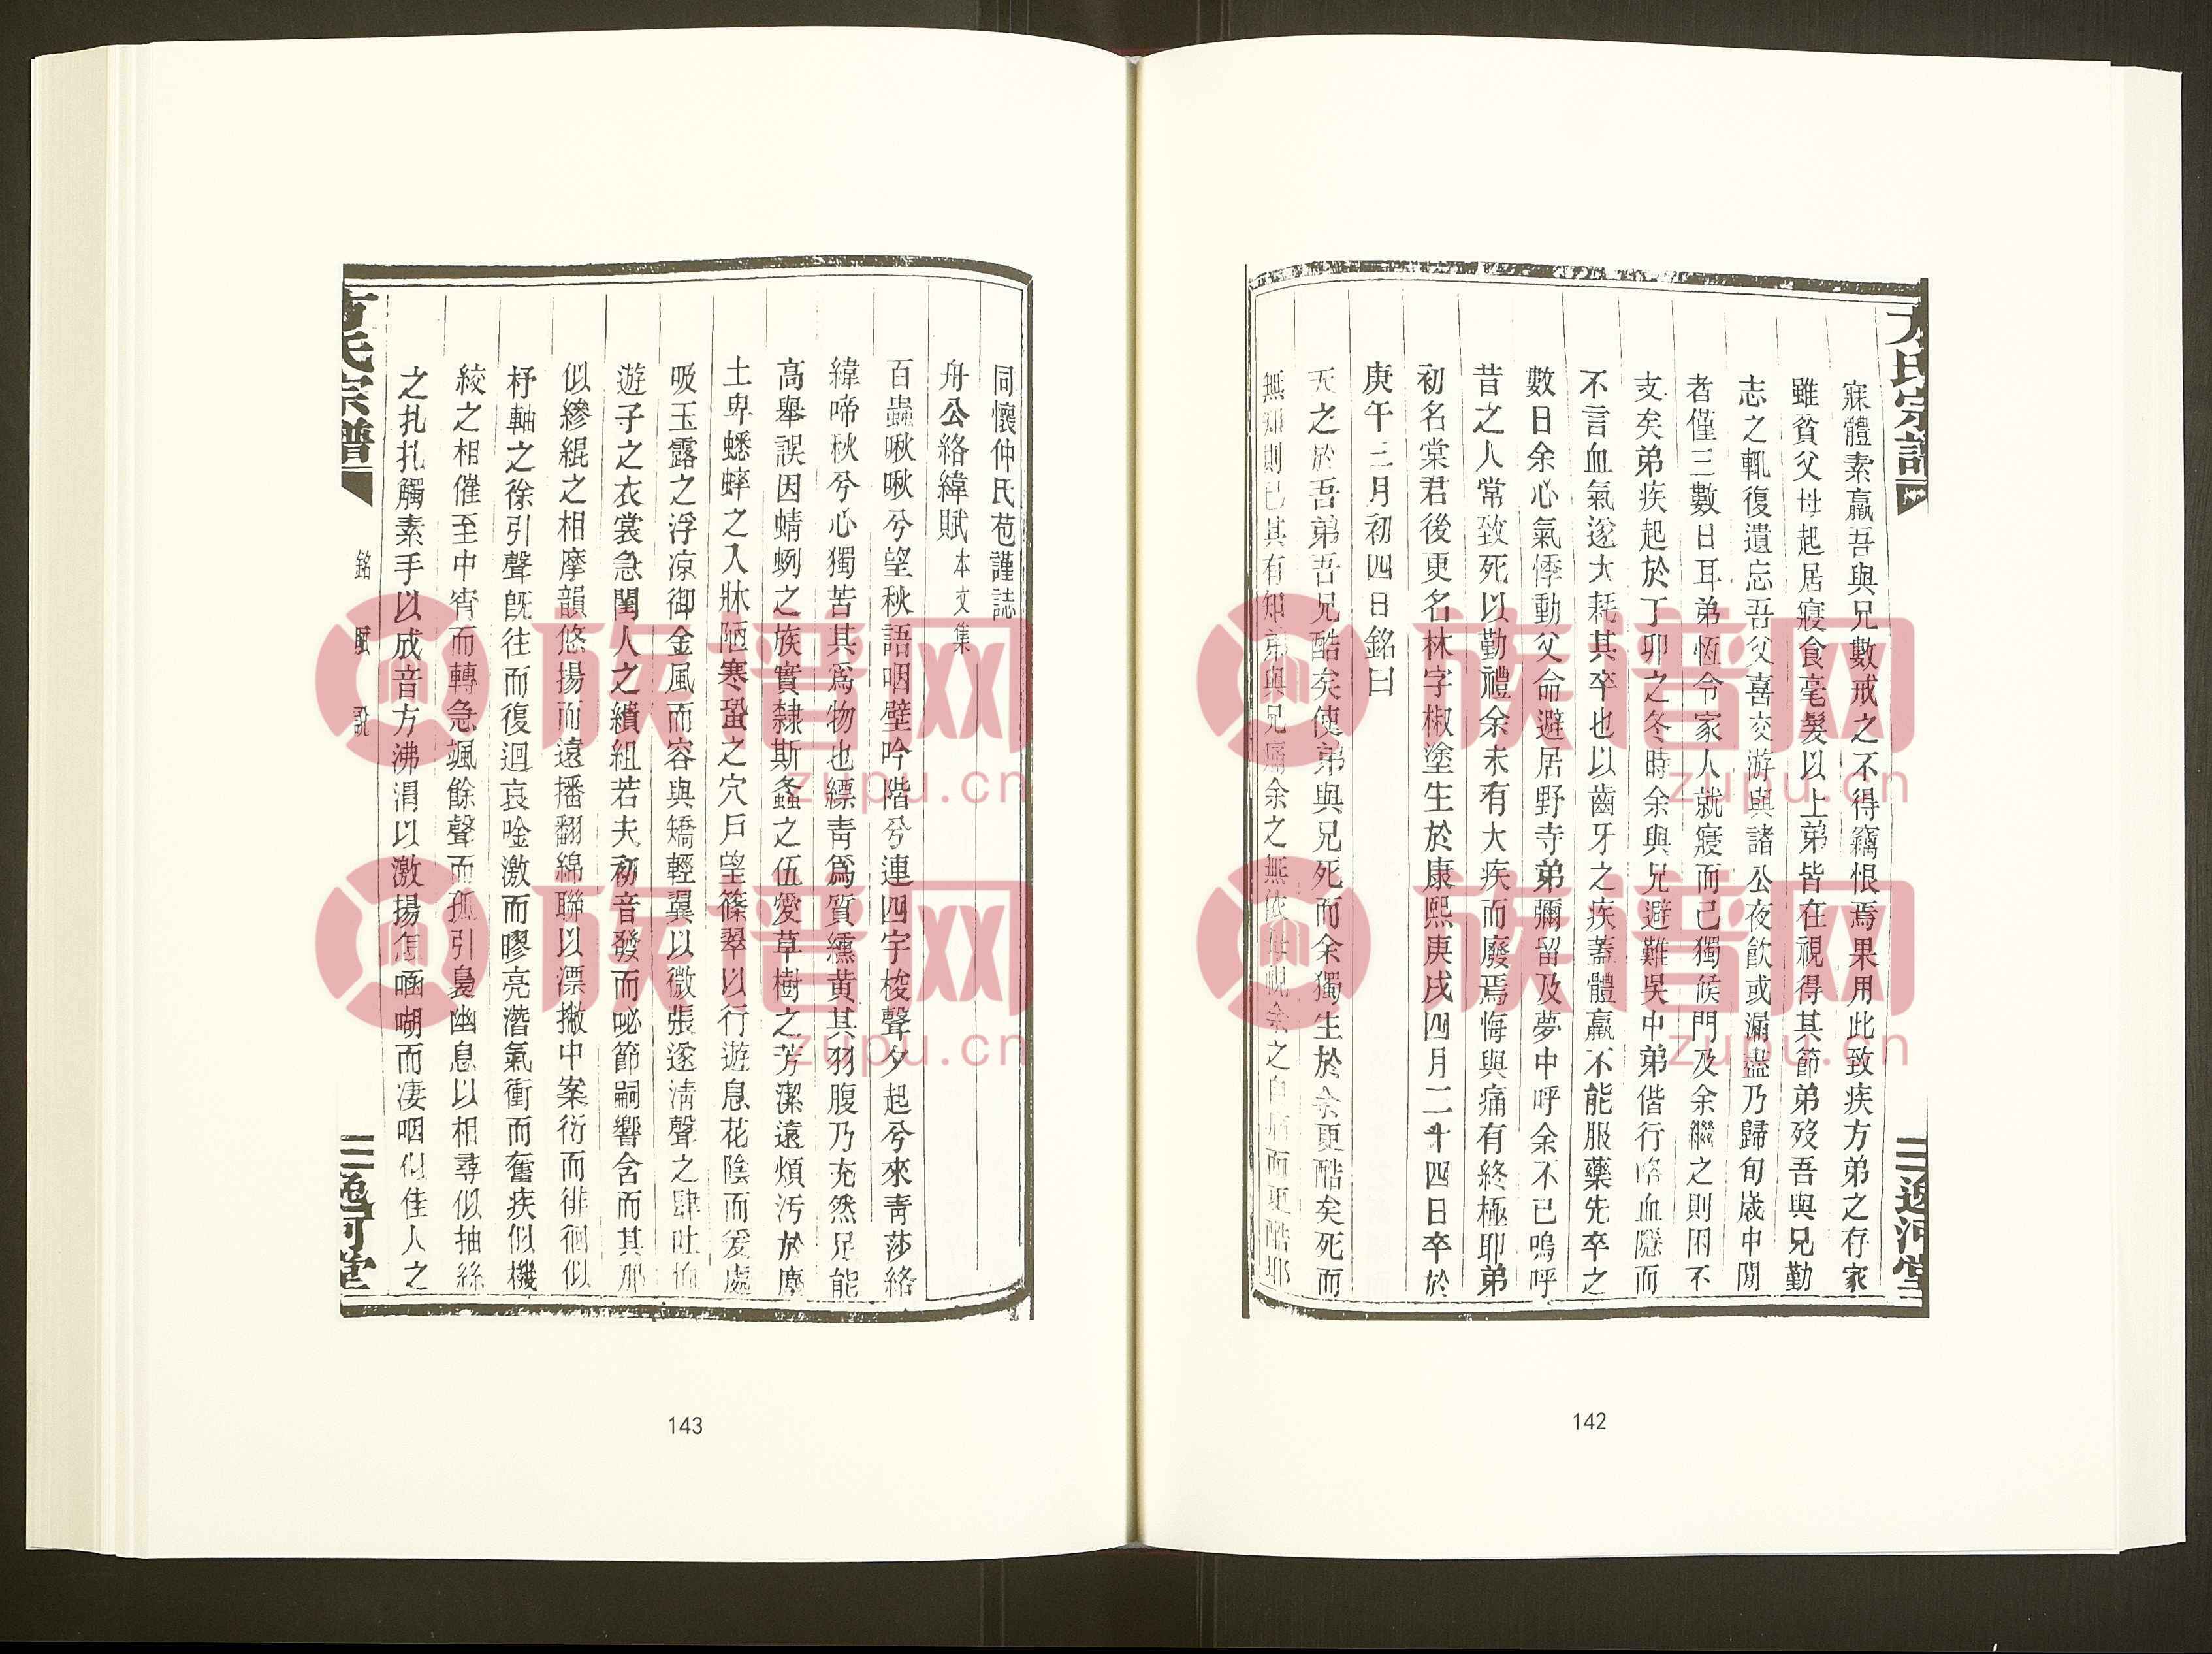 方氏宗譜
寐體素羸吾與兄數戒之不得竊恨焉果用此致疾方弟之存家
雖貧父母起居寢食毫髮以上弟皆在視得其節弟歿吾與兄勤
志之輒復遺忘吾父喜交游與諸公夜飲或漏盡乃歸旬歲中閒
者僅三數日耳弟恆令家人就寢而己獨候門及余繼之則困不
支矣弟疾起於丁卯之冬時余與兄避難吳中弟偕行咯血隱而
不言血氣遂大耗其卒也以齒牙之疾蓋體羸不能服藥先卒之
數日余心氣悸動父命避居野寺弟彌留及夢中呼余不已嗚呼
昔之人常致死以勤禮余未有大疾而廢焉悔與痛有終極耶弟
初名棠君後更名林字椒塗生於康熙庚戌四月二十四日卒於
庚午三月初四日銘曰
天之於吾弟吾兄酷矣使弟與兄死而余獨生於余更酷矣死而
無知則已其有知弟與兄痛余之無依毋視余之自痛而更酷耶
142
同懷仲氏苞謹誌
舟公絡緯賦本文集
百蟲啾啾兮望秋語咽壁吟階兮連四宇梭聲夕起兮來靑莎絡
緯啼秋兮心獨苦其爲物也縹靑爲質纁黃其羽腹乃充然足能
高舉誤因蜻蛚之族實隸斯螽之伍愛草樹之芳潔遠煩汚於塵
土卑蟋蟀之入牀陋寒螿之穴戶望篠翠以行遊息花陰而爰處
吸玉露之浮凉御金風而容與矯輕翼以微張遂淸聲之肆吐
遊子之衣裳急閨人之纊組若夫初音發而咇節嗣響含而其那
似縿緄之相摩韻悠揚而遠播翻綿聯以漂撇中案衍而徘徊似
杼軸之徐引聲旣往而復迴哀唫激而膠亮濳氣衝而奮疾似機
絞之相催至中宵而轉急颯餘聲而孤引裊幽息以相尋似抽絲
之扎扎觸素手以成音方沸渭以激揚怎㖠嘲而凄咽似佳人之
方氏宗譜
銘 賦 說
三
143